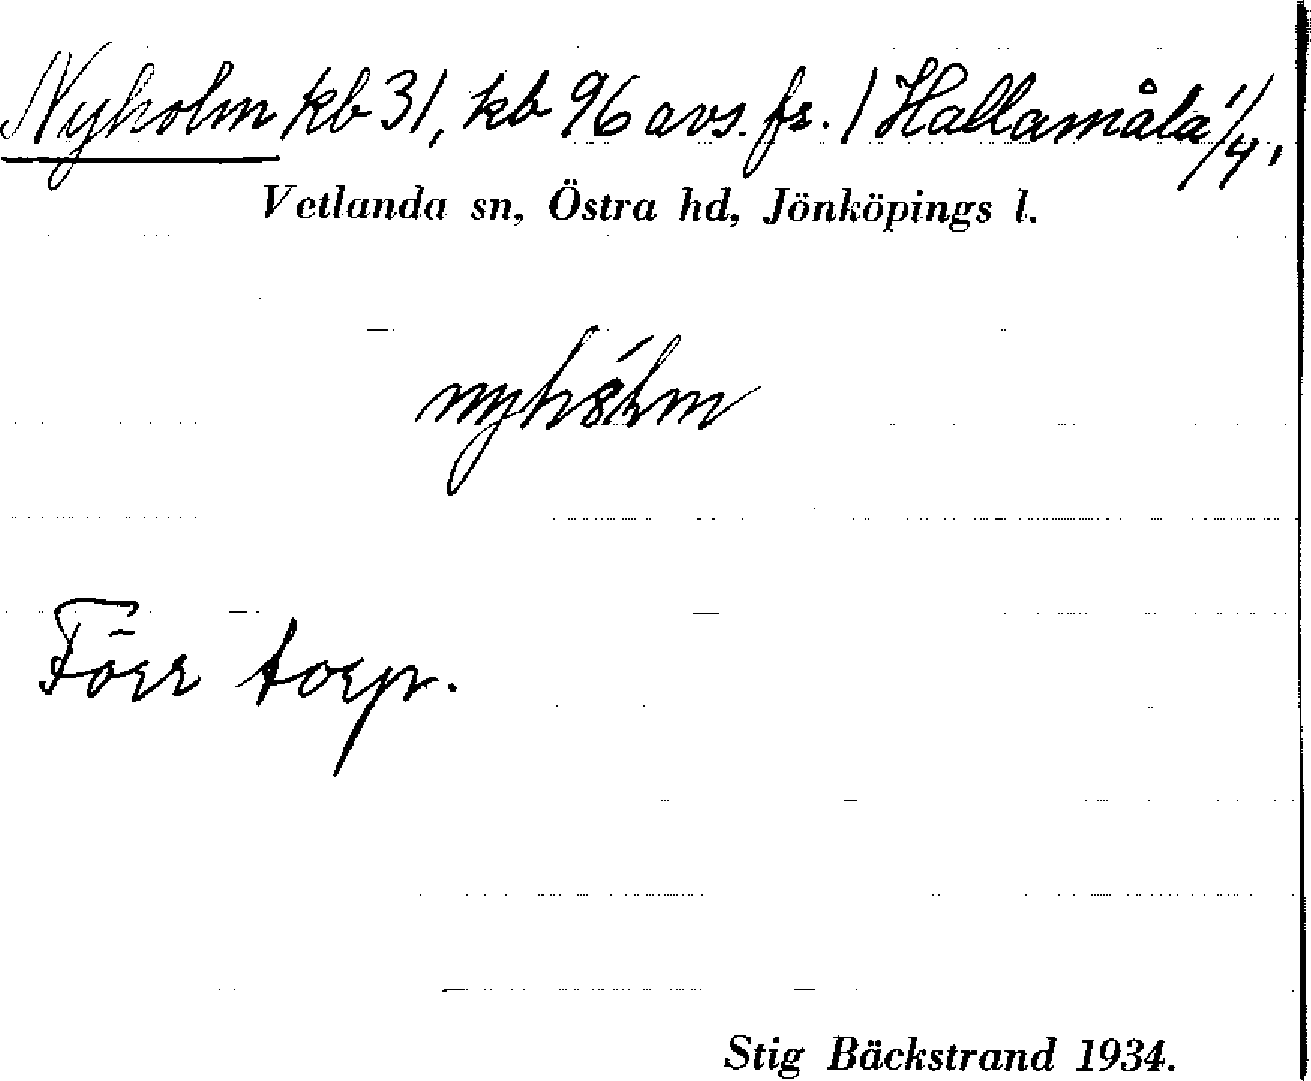 Nyholm kb 31, kb 96 avs. fr. / Hallamåla 1/4,
Vetlanda sn, Östra hd, Jönköpings l.
Förr torp.
Stig Bäckstrand 1934.